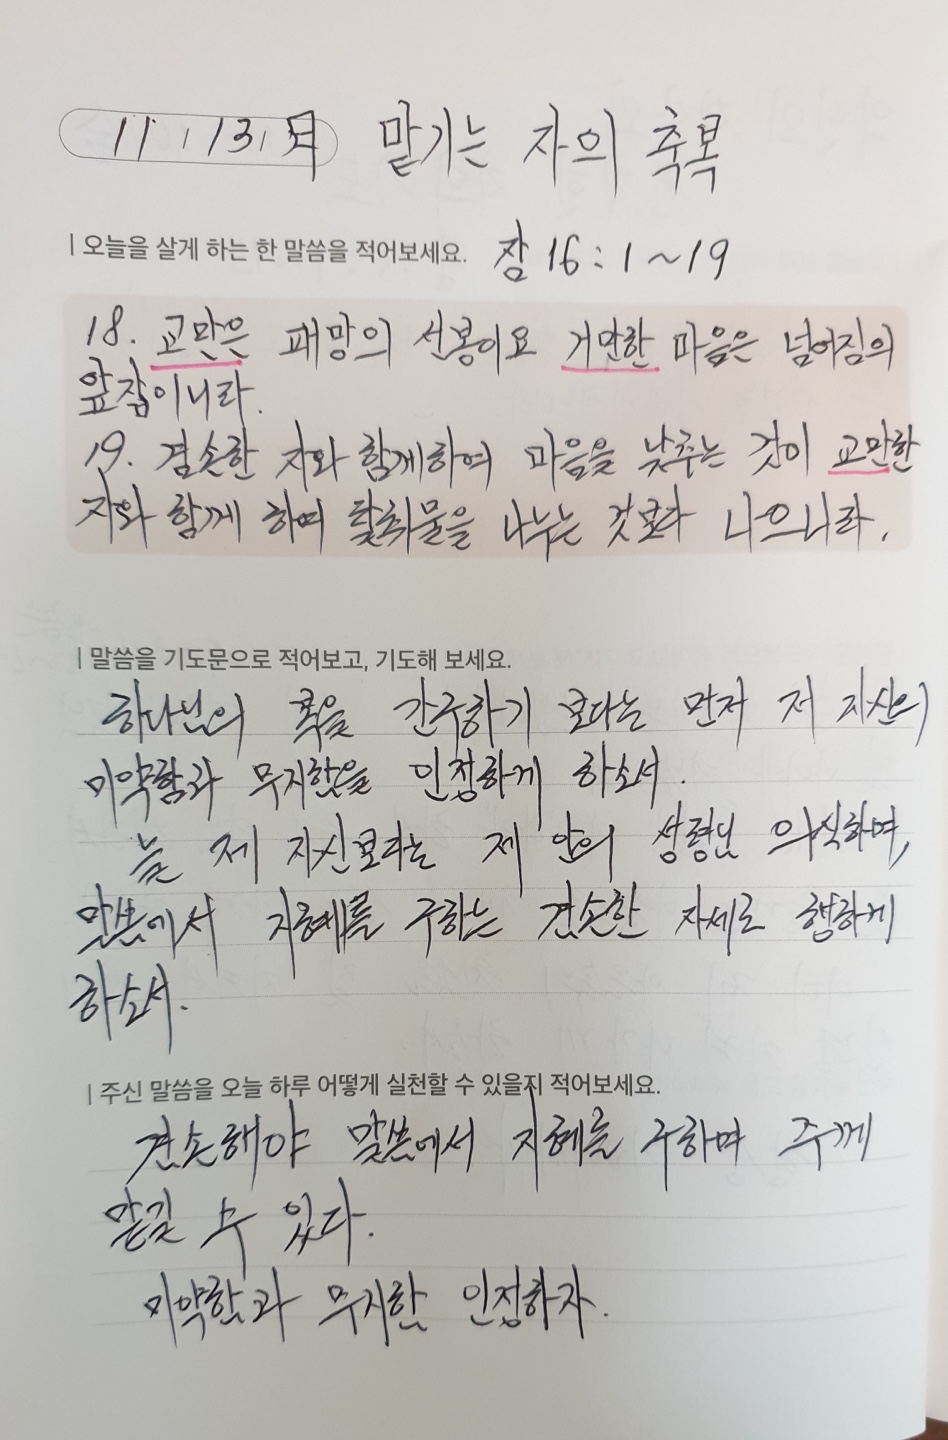 11, 13, 目 맡기는 자의 축복
| 오늘을 살게 하는 한 말씀을 적어보세요. 잠 16 : 1 ~ 19
18. 교만은 패망의 선봉이요 거만한 마음은 넘어짐의
앞잡이니라.
19. 겸손한 자와 함께하여 마음을 낮추는 것이 교만한
자와 함께 하며 탈취물을 나누는 것보다 나으니라.
| 말씀을 기도문으로 적어보고, 기도해 보세요.
하나님의 복을 간구하기 보다는 먼저 저 자신의
미약함과 무지함을 인정하게 하소서.
늘 제 자신보다는 제 안의 성령님 의식하며,
말씀에서 지혜를 구하는 겸손한 자세로 행하게
하소서.
| 주신 말씀을 오늘 하루 어떻게 실천할 수 있을지 적어보세요.
겸손해야 말씀에서 지혜를 구하며 주께
맡길 수 있다.
미약함과 무지함 인정하자.